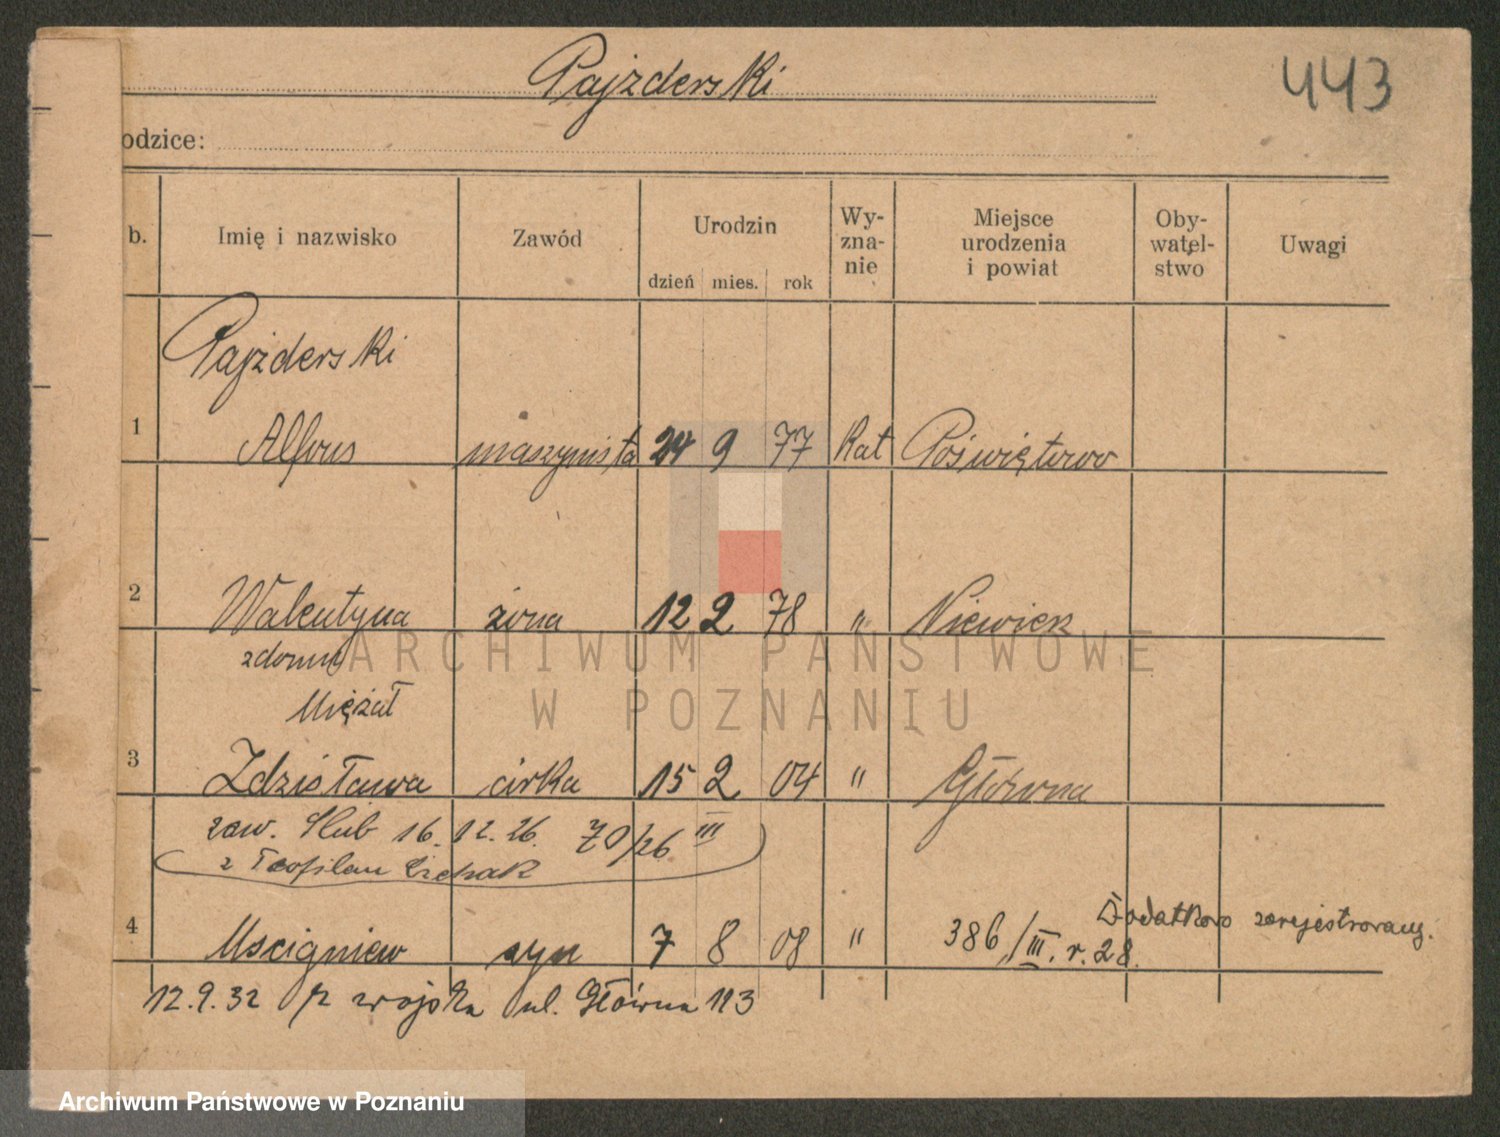 Pajżderski
443
odzice:
b. Imię i nazwisko Zawód Urodzin Wy-zna-nie Miejsce urodzenia i powiat Oby-watel-stwo Uwagi
dzień mies. rok
Pajżderski
1 Alfons maszynista 24 9 77 Kat Pośwíętowo
2 Walentyna żona 12 2 78 " Niewierz
z domu
Miężał
3 Zdzisława córka 15 2 04 " Główna
zaw. ślub 16.12.26. 70/26 III
z Teofilem Cichak
Dodatkowo zarejestrowany.
4 Mscigniew syn 7 8 08 " 386/III. r. 28.
12.9.32 z wojska ul. Główna 113
ARCHIWUM PAŃSTWOWE
W POZNANIU
Archiwum Państwowe w Poznaniu